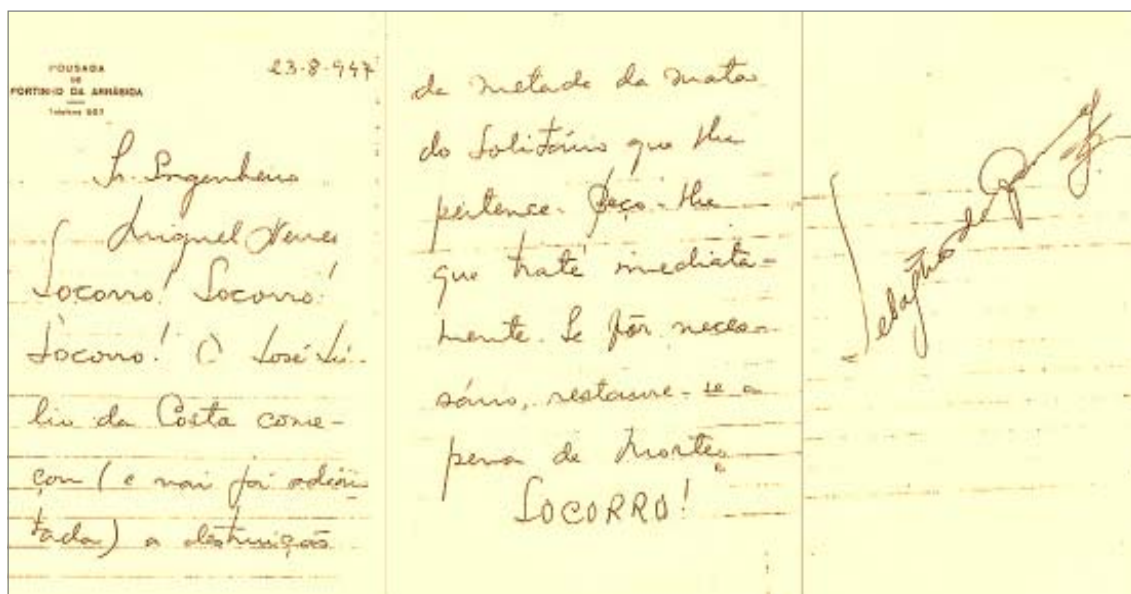 POUSADA
DE
PORTINHO DA ARRÁBIDA
Telefone
23-8-947
Sr. Engenheiro
Miguel Neves
Socorro! Socorro!
Socorro! O José Jú-
lio da Costa come-
çou (e vai já adian-
tada) a destruição
da metade da mata
do Solitário que lhe
pertence. Peço-lhe
que trate imediata-
mente. Se fôr neces-
sário, restaure-se a
pena de morte.
SOCORRO!
Sebastião da Gama